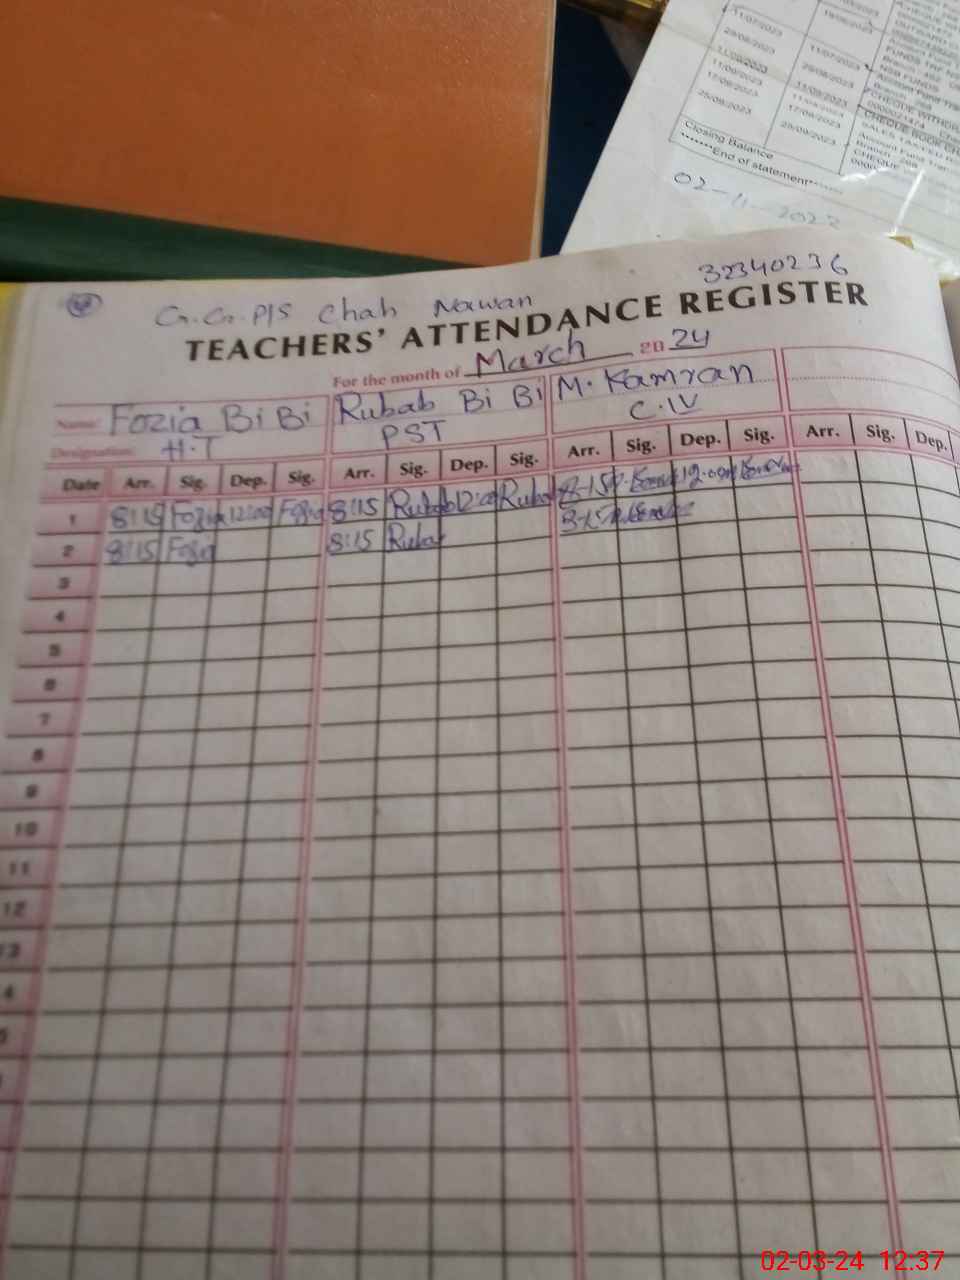 11/07/2023
29/08/2023 11/07/2023
11/09/2023 29/08/2023
17/09/2023 11/09/2023
25/09/2023 17/09/2023
25/09/2023
FUNDS TRF
NSB FUNDS
CHEQUE BOOK
Closing Balance
*******End of statement*******
02-11-2023
32340236
G.G.P/S Chah Nawan
TEACHERS' ATTENDANCE REGISTER
For the month of March 2024
Name: Fozia Bi Bi Rubab Bi Bi M. Kamran
Designation: H.T PST C.IV
Date Arr. Sig. Dep. Sig. Arr. Sig. Dep. Sig. Arr. Sig. Dep. Sig. Arr. Sig. Dep.
1 8:15 Fozia 12:00 Fozia 8:15 Rubab 12:00 Rubab 8-15
2 8:15 Fozia 8:15 Rubab 8-15
3
4
5
6
7
8
9
10
11
12
13
02-03-24 12:37